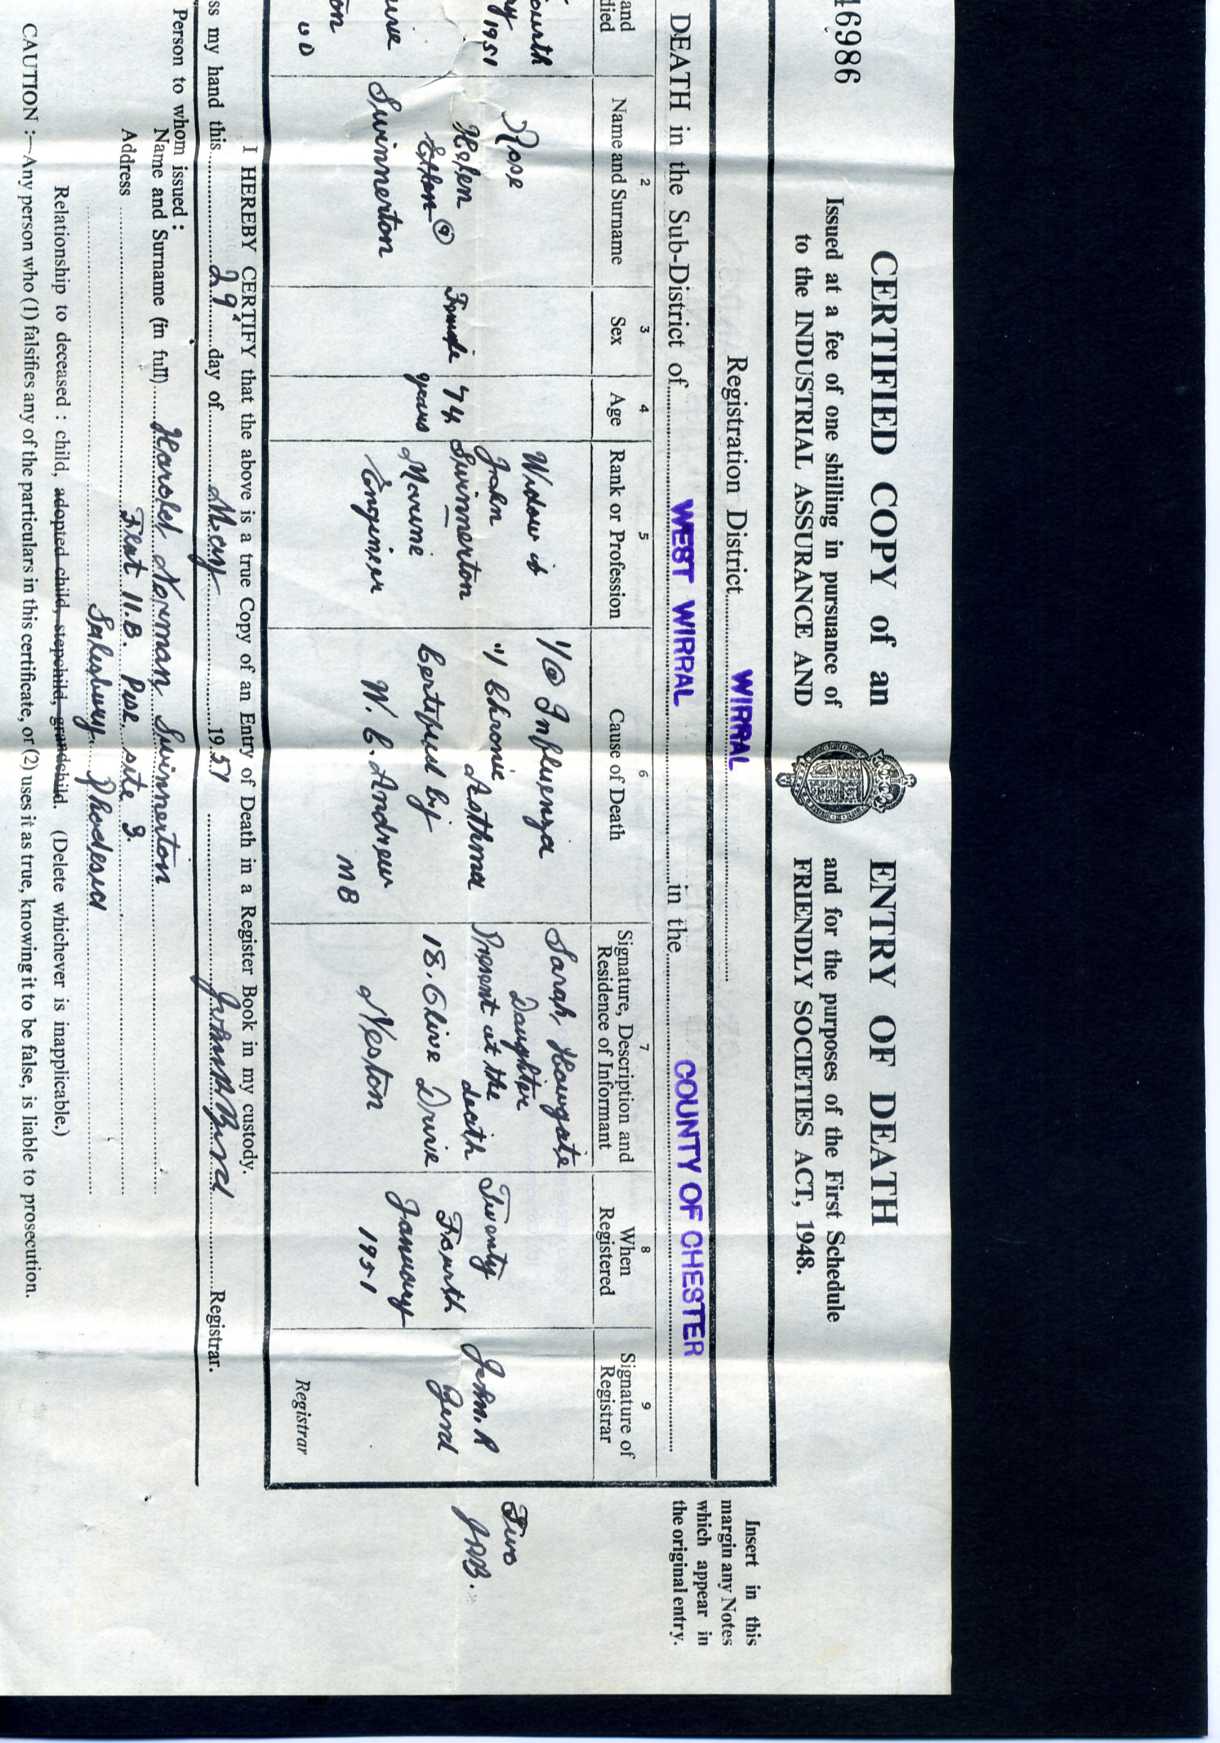 46986
CERTIFIED COPY of an ENTRY OF DEATH
Issued at a fee of one shilling in pursuance of and for the purposes of the First Schedule
to the INDUSTRIAL ASSURANCE AND FRIENDLY SOCIETIES ACT, 1948.
Registration District WIRRAL
DEATH in the Sub-District of WEST WIRRAL in the COUNTY OF CHESTER
Insert in this
margin any Notes
which appear in
the original entry.
and
died
2
Name and Surname
3
Sex
4
Age
5
Rank or Profession
6
Cause of Death
7
Signature, Description and
Residence of Informant
8
When
Registered
9
Signature of
Registrar
ourth
1951
on
UD
Rose
Helen
Ellen
Swinnerton
Female
74
years
Widow of
John
Swinnerton
Marine
Engineer
Influenza
Chronic
Asthma
Certified by
W. C. Andrew
MB
Sarah Howgate
Daughter
Present at the
death
18. Clive Drive
Neston
Twenty
Fourth
January
1951
John. R
Bird
Registrar
Two
JRB.
I HEREBY CERTIFY that the above is a true Copy of an Entry of Death in a Register Book in my custody.
ss my hand this 29 day of May 1951 John R Bird Registrar.
Person to whom issued :
Name and Surname (in full) Harold Norman Swinnerton
Address Flat 11.B. site 3.
Salisbury Rhodesia
Relationship to deceased : child, adopted child, stepchild, grandchild. (Delete whichever is inapplicable.)
CAUTION :—Any person who (1) falsifies any of the particulars in this certificate, or (2) uses it as true, knowing it to be false, is liable to prosecution.